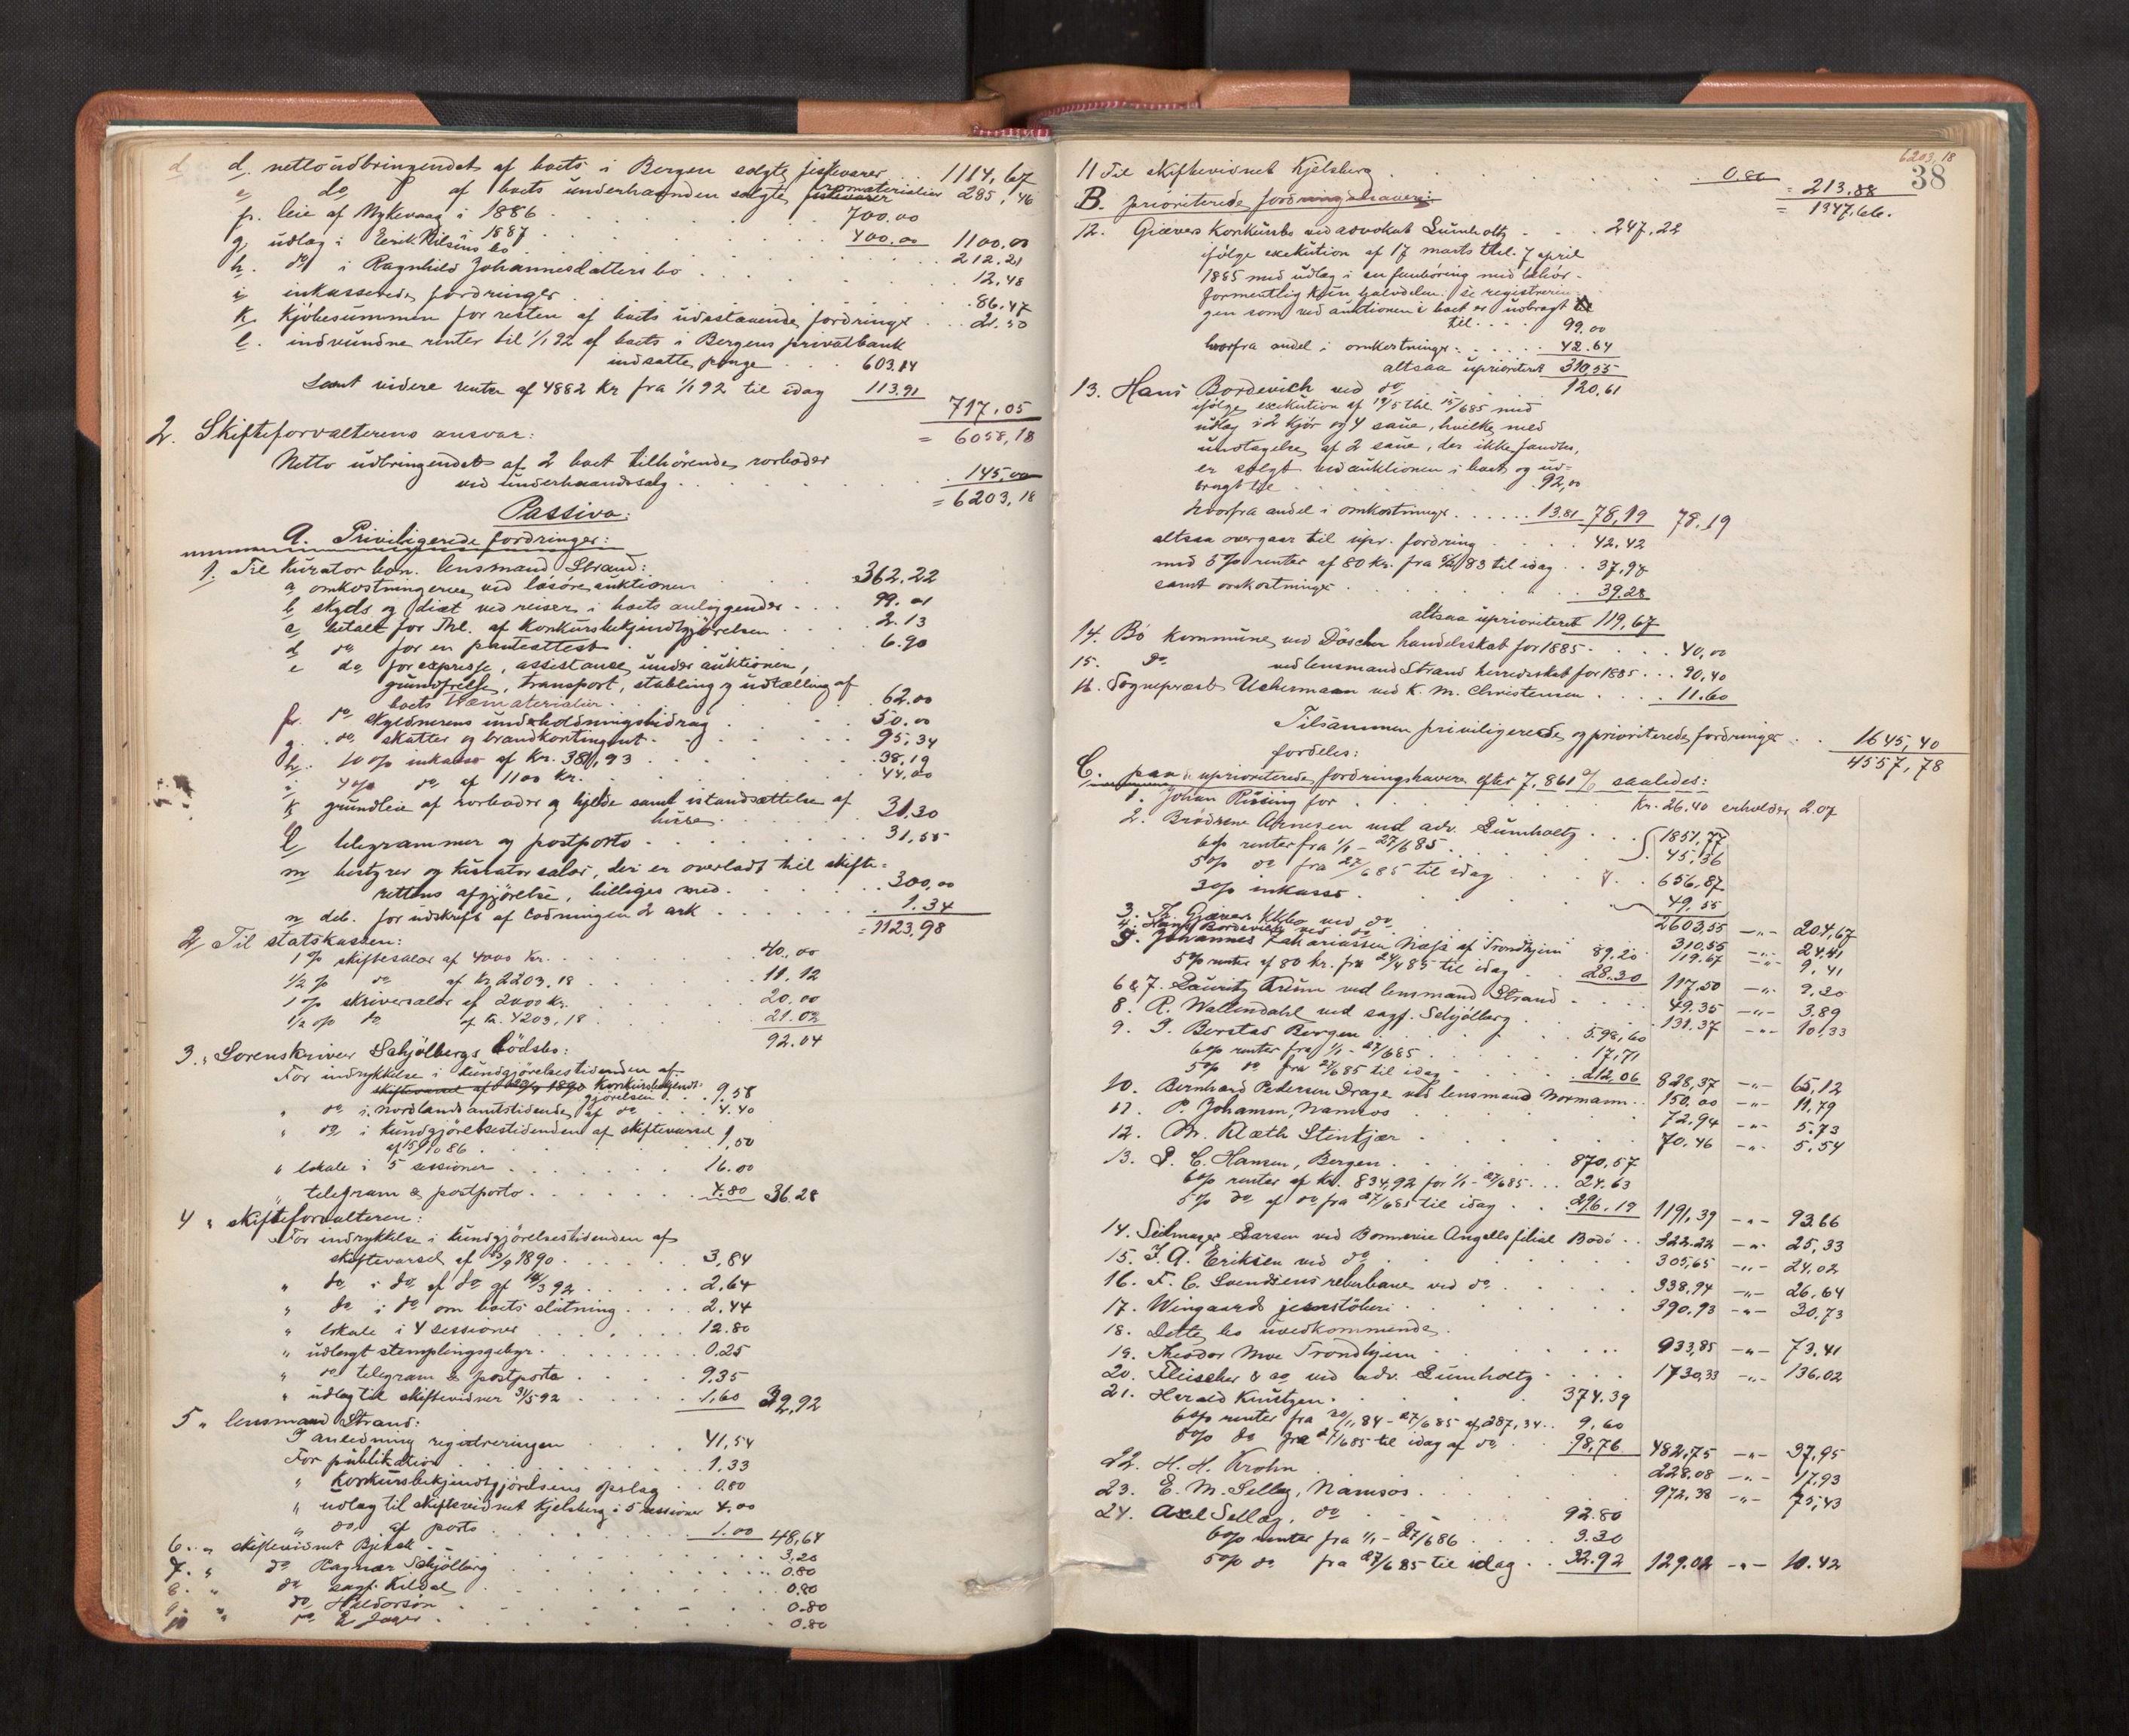 d d. nettoudbringendet af boets i Bergen solgte fiskevarer . . 1114,67
e do af boets underhaanden solgte fiskevarer romaterialier 285,46
f. leie af Nykevaag i 1886 . . . 700,00
1887 . . . 400.00 1100.00
g. udlag i Erik Nilsens bo . . . 212.21
h. do i Ragnhild Johannesdatters bo . . . 12,48
i inkasserede fordringer . . . 86.47
k. Kjøbesummen for resten af boets udestaaende fordringer . . 21.50
l. indvundne renter til 1/1 92 af boets i Bergens privatbank
indsatte penge . . . 603.14
samt videre renter af 4882 kr fra 1/1 92 til idag 113.91
717.05
= 6058,18
2. Skifteforvalterens ansvar:
Netto udbringendet af 2 boet tilhørende rorboder
ved underhaandssalg . . . 145,00
= 6203,18
Passiva:
A. Priviligerede fordringer:
1. Til Kurator bon. lensmand Strand:
a, omkostningerne ved løsøreauktionen 362.22
b, skyds og diæt ved reiser i boets anliggender . . . 99.01
c, betalt for Thl. af Konkursbekjendtgjørelsen . . . 2.13
d do for en pantattest . . . 6.90
e do for expresse, assistance under auktionen,
transport, stabling og udtælling af
boets træmaterialier . . . 62.00
f. do skyldnerens underholdningsbidrag . . . 50.00
g. do skatter og brandkontingent . . . 95,34
h. 10 o/o inkasso af Kr. 381,93 . . . 38,19
i 4 o/o do af 1100 kr. . . . 44,00
k grundleie af rorboder og hjelde samt istandsættelse af
huse . . . 31.30
l, telegrammer og postporto . . . 31,55
m bestyrer og kuratorsalær, der er overladt til skifte-
rettens afgjørelse, billiges med . . . 300,00
n deb. for udskrift af Lodningen 2 ark . . . 1.34
= 1123,98
2, Til statskassen:
1 o/o skiftesalær af 4000 kr. . . . 40,00
1/2 o/o do af kr 2203.18 . . . 11.12
1 o/o skriversalær af 2000 kr. . . . 20.00
1/2 o/o do af kr. 4203,18 . . . 21.02
92.04
3. Sorenskriver Schjølbergs dødsbo:
For indrykkelse i kundgjørelsestidenden af
skiftevarsel af 1890 Konkursbekjendt-
gjørelsen . . . 9,58
" do i Nordlands amtstidende af do . . . 4.40
" do i kundgjørelsestidenden af skiftevarsel
af 15/10 86 . . . 1,50
" lokale i 5 sessioner . . . 16.00
" telegram & postporto . . . 4.80 36.28
4 " skifteforvalteren:
For indrykkelse i kundgjørelsestidenden af
skiftevarsel af 23/9 1890 . . . 3,84
" do i do af do af 14/3 92 . . . 2,64
" do i do om boets slutning . . . 2.44
" lokale i 4 sessioner . . . 12.80
" udlagt stemplingsgebyr . . . 0.25
" do telegram & postporto . . . 9.35
" udlag til skiftevidner 31/5 92 . . . 1,60 32,92
5 " lensmand Strand:
I anledning registreringen . . . 41,54
For publikation . . . 1.33
" Konkursbekjendtgjørelsens opslag . . 0.80
" udlag til skiftevidnet Kjelsberg i 5 sessioner 4.00
" do af porto . . . 1.00 48,64
6. " skiftevidnet . . . 3,20
7. " do Ragnar Schjølberg . . . 0.80
8. " do sagf. Kildal . . . 0.80
9. " do Haldorsøn . . . 0.80
10 do E. Jager . . . 0.80
6203,18
38
11 Til skiftevidnet Kjelsberg . . . 0.80
= 213.88
= 1347,66.
B. prioriterede fordringshavere:
12. Giævers konkursbo ved advokat Lumholtz . . . 247.22
ifølge exekution af 17 marts thl. 7 april
1885 med udlag i en fembøring med behør-
formentlig kun halvdelen, se registrerin-
gen som ved auktionen i boet er udbragt
til . . . 99.00
hvorfra andel i omkostninger: . . . 42.64
altsaa uprioriteret 310.55
13. Hans Bordevich ved do . . . 120,61
ifølge exekution af 19/5 thl. 15/6 85 med
udlag i 2 kjør og 4 saue, hvilke, med
undtagelse af 2 saue, der ikke fandtes,
er solgt ved auktionen i boet og ud-
bragt til . . . 92,00
hvorfra andel i omkostninger . . . 13.81 78,19 78.19
altsaa overgaar til upr. fordring . . . 42,42
med 5 o/o renter af 80 kr. fra 83 til idag . . 37,98
samt omkostninger . . . 39.28
altsaa uprioriteret 119,67
14. Bø kommune ved Døscher handelsskat for 1885 . . . 40,00
15. do ved lensmand Strand herredsskat for 1885 . . . 90,40
16. Sogneprest Uchermann ved K. M. Christensen . . . 11.60
Tilsammen priviligerede og prioriterede fordringer . . 1645,40
fordeles: 4557,78
C. paa uprioriterede fordringshavere efter 7,861 % saaledes:
1. Johan Rissing for . . . Kr. 26.40 erholder 2.07
2. Brødrene Arnesen ved adv. Lumholtz . . . 1851,77
6 o/o renter fra 1/1 - 27/6 85 . . . 45,36
5 o/o do fra 27/6 85 til idag . . . 656,87
3 o/o inkasso . . . 49,55
2603,55 -"- 204,67
3. Tr. Giævers kkbo ved do . . . 310.55 -"- 24.41
4. Hans Bordevich ved do . . . 119.67 -"- 9,41
5. Johannes Zakariassen Næss af Trondhjem 89,20
5 o/o renter af 80 kr. fra 24/4 85 til idag . . 28.30 117.50 -"- 9.20
6 & 7. Lauritz Krum ved lensmand Strand . . . 49.35 -"- 3,89
8. R. Wallendahl ved sagf. Schjølberg . . . 131.37 -"- 10,33
9. I. Berstad Bergen . . . 598,60
6 o/o renter fra 1/1 - 27/6 85 . . . 17,71
5 o/o do fra 27/6 85 til idag . . . 212,06 828,37 -"- 65,12
10. Bernhard Pedersen Drage ved lensmand Normann . . 150.00 -"- 11,79
11. P. Johansen, Namsos . . . 72,94 -"- 5.73
12. M. Klæth Stenkjær . . . 70.46 -"- 5.54
13. P. C. Hansen, Bergen . . . 870,57
6 o/o renter af Kr. 834,92 for 1/1 - 27/6 85 . . . 24.63
5 o/o do af do fra 27/6 85 til idag . . . 296.19 1191,39 -"- 93.66
14. Selmager Larsen ved Bommevie Angells filial Bodø . . 322.22 -"- 25,33
15. J. A. Eriksen ved do . . . 305,65 -"- 24.02
16. F. C. Svendsens reberbane ved do . . . 338.94 -"- 26,64
17. Wingaards jernstøberi . . . 390.93 -"- 30.73
18. Dette bo uvedkommende.
19. Theodor Moe Trondhjem . . . 933,85 -"- 73,41
20. Fleischer & Co ved adv. Lumholtz . . . 1730,33 -"- 136.02
21. Herald Knutzen . . . 374.39
6 o/o renter fra 20/11 84 - 27/6 85 af 287,34 . . 9,60
5 o/o do fra 27/6 85 til idag af do . . . 98,76 482,75 -"- 37,95
22. H. H. Krohn . . . 228.08 -"- 17,93
23. E. M. Sellæg, Namsos . . . 972.38 -"- 75,43
24. Axel Sellæg, do . . . 92.80
6 o/o renter fra 1/1 - 27/6 86 . . . 3.30
5 o/o do fra 27/6 85 til idag . . 32.92 129.02 -"- 10.42